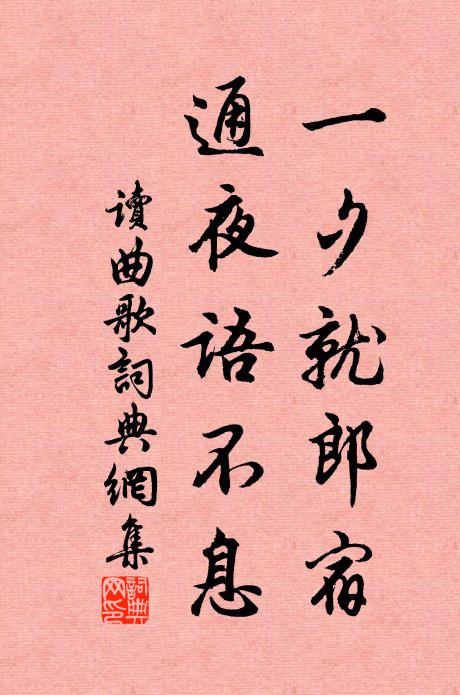 一夕就郎宿
通夜語不息
讀曲歌詞典網集
詞典網印